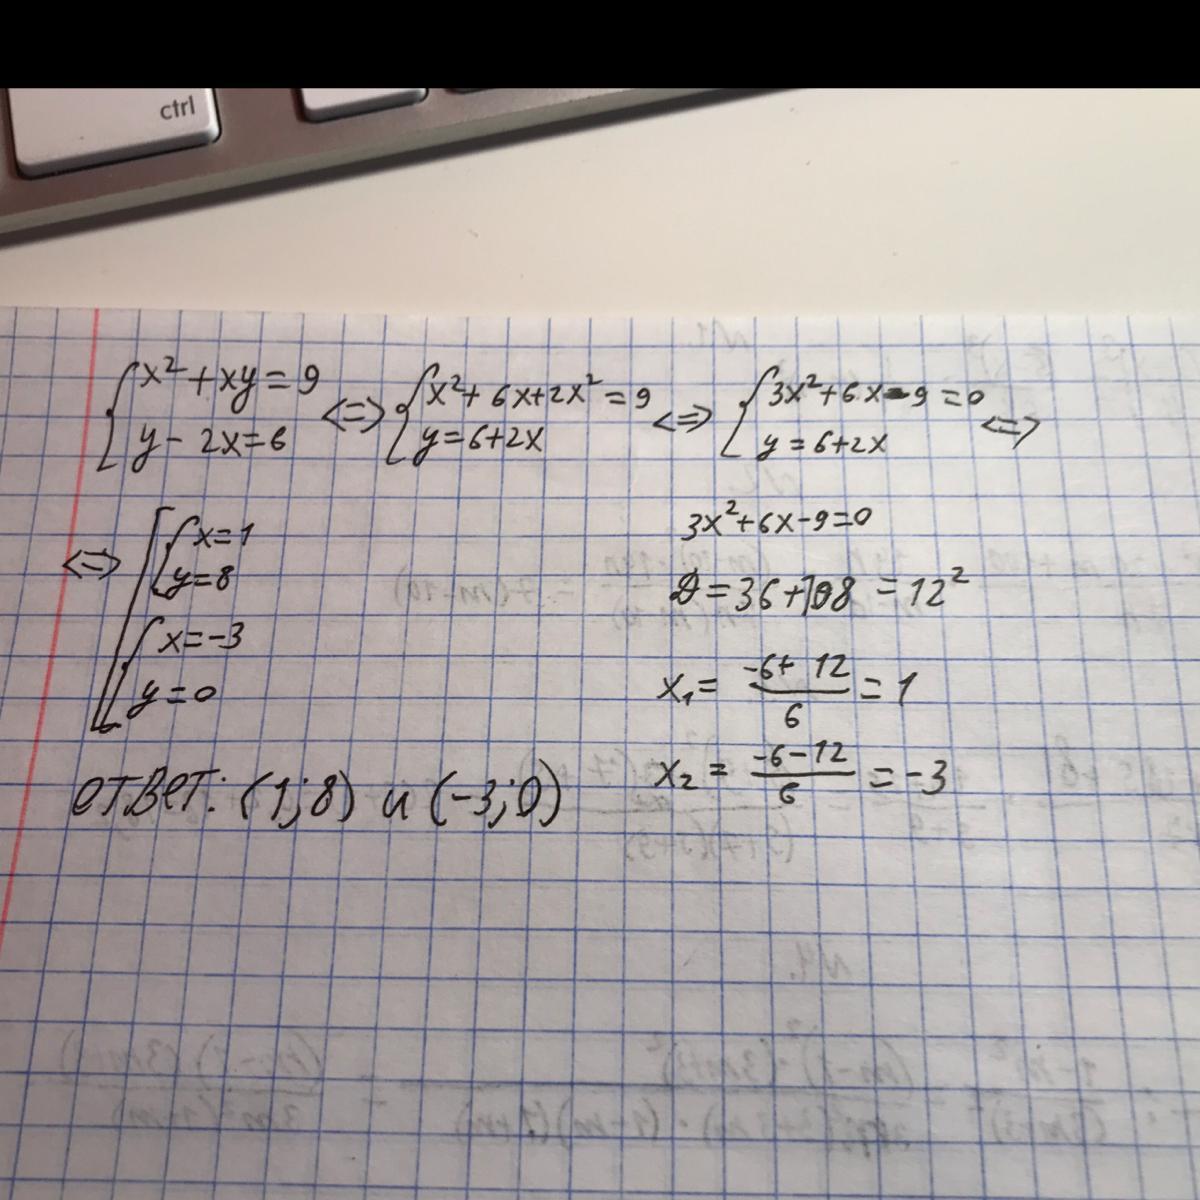 ctrl
{ x² + xy = 9 <=> { x² + 6x + 2x² = 9 <=> { 3x² + 6x - 9 = 0 <=>
y - 2x = 6 y = 6 + 2x y = 6 + 2x
<=> [ { x = 1
y = 8
{ x = -3
y = 0
3x² + 6x - 9 = 0
D = 36 + 108 = 12²
x₁ = (-6 + 12)/6 = 1
x₂ = (-6 - 12)/6 = -3
ответ: (1; 8) и (-3; 0)